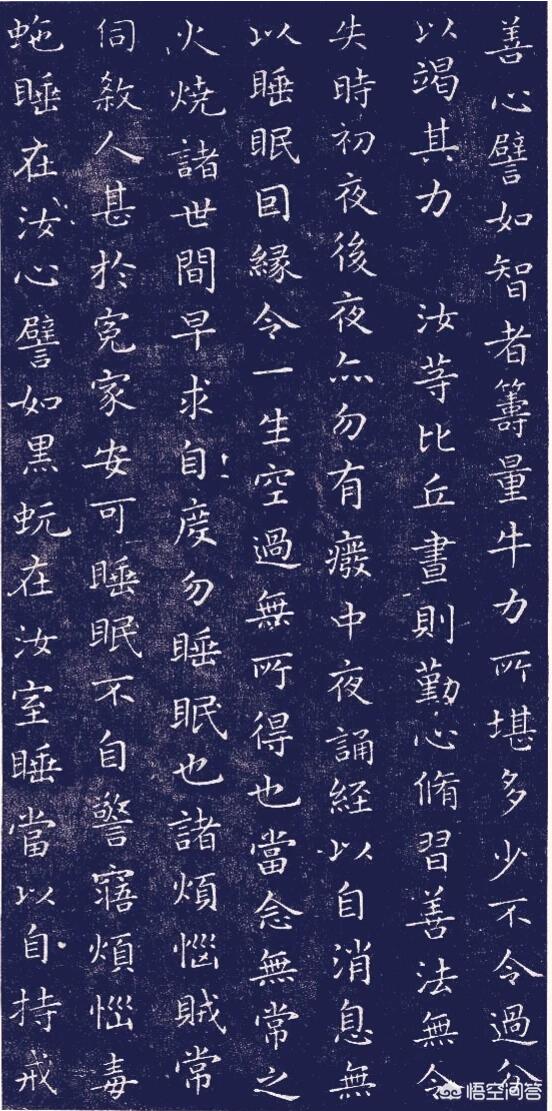 善心譬如智者籌量牛力所堪多少不令過分
以竭其力　汝等比丘晝則勤心脩習善法無令
失時初夜後夜亦勿有癈中夜誦経以自消息無
以睡眠因緣令一生空過無所得也當念無常之
火燒諸世間早求自度勿睡眠也諸煩惱賊常
伺煞人甚於冤家安可睡眠不自警寤煩惱毒
虵睡在汝心譬如黑蚖在汝室睡當以自持戒
悟空问答